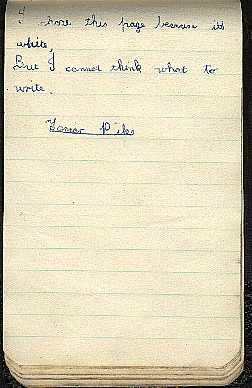 I chose this page because its
white,
But I cannot think what to
write.
Pike